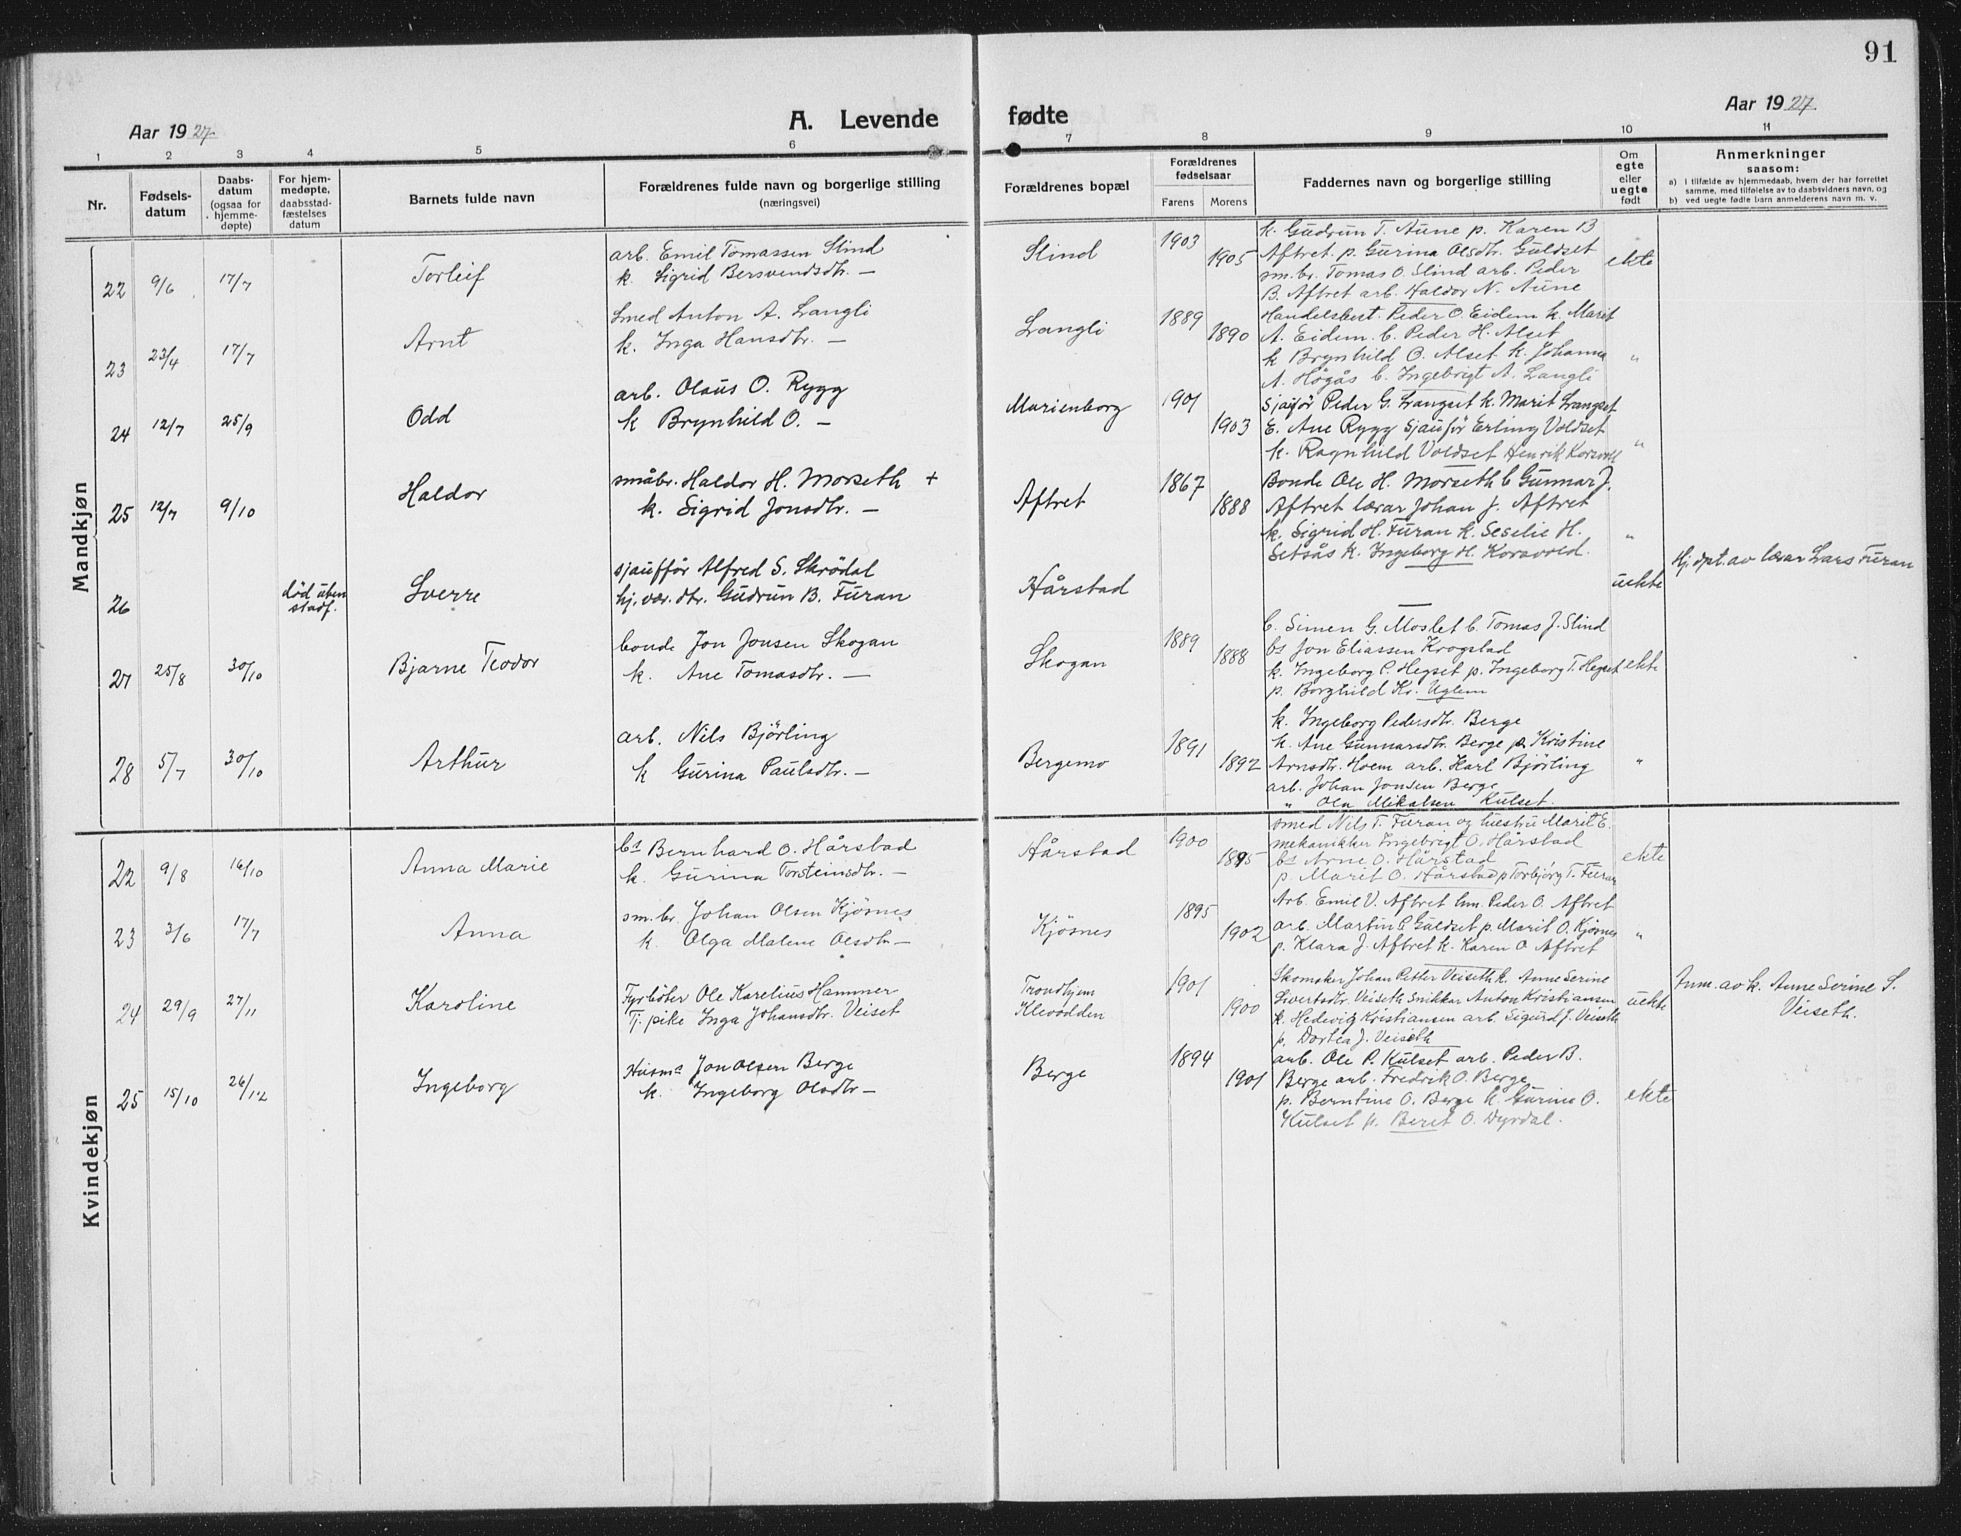 91
Aar 1927
A. Levende
fødte
Aar 1927
1 2 3 4 5 6 7 8 9 10 11
Nr.
Fødsels-
datum
Daabs-
datum
(ogsaa for
hjemme-
døpte)
For hjem-
medøpte,
daabsstad-
fæstelses
datum
Barnets fulde navn
Forældrenes fulde navn og borgerlige stilling
(næringsvei)
Forældrenes bopæl
Forældrenes
fødselsaar
Farens Morens
Faddernes navn og borgerlige stilling
Om
egte
eller
uegte
født
Anmerkninger
saasom:
a) I tilfælde av hjemmedaab, hvem der har forrettet
samme, med tilføielse av to daabsvidners navn, og
b) ved uegte fødte barn anmelderens navn m. v.
Mandkjøn
22 9/6 17/7 Torleif
arb. Emil Tomassen Slind
k. Sigrid Bersvendsdtr. —
Slind 1903 1905
k. Gudrun T. Aune p. Karen B
Aftret p. Gurina Olsdtr. Guldset
sm.br. Tomas O. Slind arb. Peder
B. Aftret arb. Haldor N. Aune
ekte
23 23/4 17/7 Arnt
Smed Anton A. Langli
k. Inga Hansdtr. —
Langli 1889 1890
Handelsbest. Peder O. Eidem k. Marit
A. Eidem. b. Peder H. Alset
k Brynhild O. Alset k. Johanna
A. Högås b. Ingebrigt A. Langli
"
24 12/7 25/9 Odd
arb. Olaus O. Rygg
k Brynhild O. —
Marienborg 1901 1903
Sjaufør Peder G. Langset k. Marit Langset
E. Ane Rygg Sjaufør Erling Voldset
k. Ragnhild Voldset Henrik Korsvold
"
25 12/7 9/10 Haldor
småbr. Haldor H. Morseth +
k. Sigrid Jonsdtr. —
Aftret 1867 1888
Bonde Ole H. Morseth b Gunnar J.
Aftret lærar Johan J. Aftret
k. Sigrid H. Furan k. Sesilie H.
Setsås k. Ingeborg H. Korsvold.
"
26 død uten
stadf.
Sverre
sjaufför Alfred S. Skrødal
hj. vær. dtr. Gudrun B. Furan
Hårstad
—
uekte
Hj. dpt. av lærar Lars Furan
27 25/8 30/10 Bjarne Teodor
bonde Jon Jonsen Skogan
k. Ane Tomasdtr. —
Skogan 1889 1888
b. Simen G. Moslet b. Tomas J. Slind
bs Jon Eliassen Krogstad
k. Ingeborg P. Hegset p. Ingeborg T. Hegset
p. Borghild Kr. Uglem
ekte
28 5/7 30/10 Arthur
arb. Nils Bjørling
k Gurina Paulsdtr. —
Bergemo 1891 1892
k. Ingeborg Pedersdtr. Berge
k. Ane Gunnarsdtr. Berge p. Kristine
Arnsdtr. Hoem arb. Karl Bjørling
arb. Johan Jonsen Berge
" Ola Mikalsen Kulset.
"
Kvindekjøn
22 9/8 16/10 Anna Marie
bs Bernhard O. Hårstad
k. Gurina Torsteinsdtr. —
Hårstad 1900 1895
smed Nils T. Furan og hustru Marit E.
mekanikker Ingebrigt O. Hårstad
bs Arne O. Hårstad
p. Marit O. Hårstad p Torbjørg T. Furan
ekte
23 3/6 17/7 Anna
sm.br. Johan Olsen Kjøsnes
k. Olga Malene Olsdtr —
Kjøsnes 1895 1902
Arb. Emil V. Aftret hm. Peder O. Aftret
arb. Martin P Guldset p. Marit O. Kjøsnes
p. Klara J. Aftret k. Karen O Aftret
"
24 29/9 27/11 Karoline
Fyrbøter Ole Karelius Hammer
Tj. pike Inga Johansdtr. Veiset
Trondhjem
Klevådden
1901 1900
Skomaker Johan Petter Veiseth k. Anne Serine
Sivertsdtr. Veiseth Snikkar Anton Kristiansen
k. Hedevig Kristiansen arb. Sigurd J. Veiseth
p. Dortea J. Veiseth
uekte
Anm. av k. Anne Serine S.
Veiseth.
25 15/10 26/12 Ingeborg
Husm. Jon Olsen Berge
k. Ingeborg Olsdtr —
Berge 1894 1901
arb. Ole P. Kulset arb. Peder B.
Berge arb. Fredrik O. Berge
p. Berntine O. Berge k. Gurine O.
Kulset p. Beret O. Dyrdal.
ekte